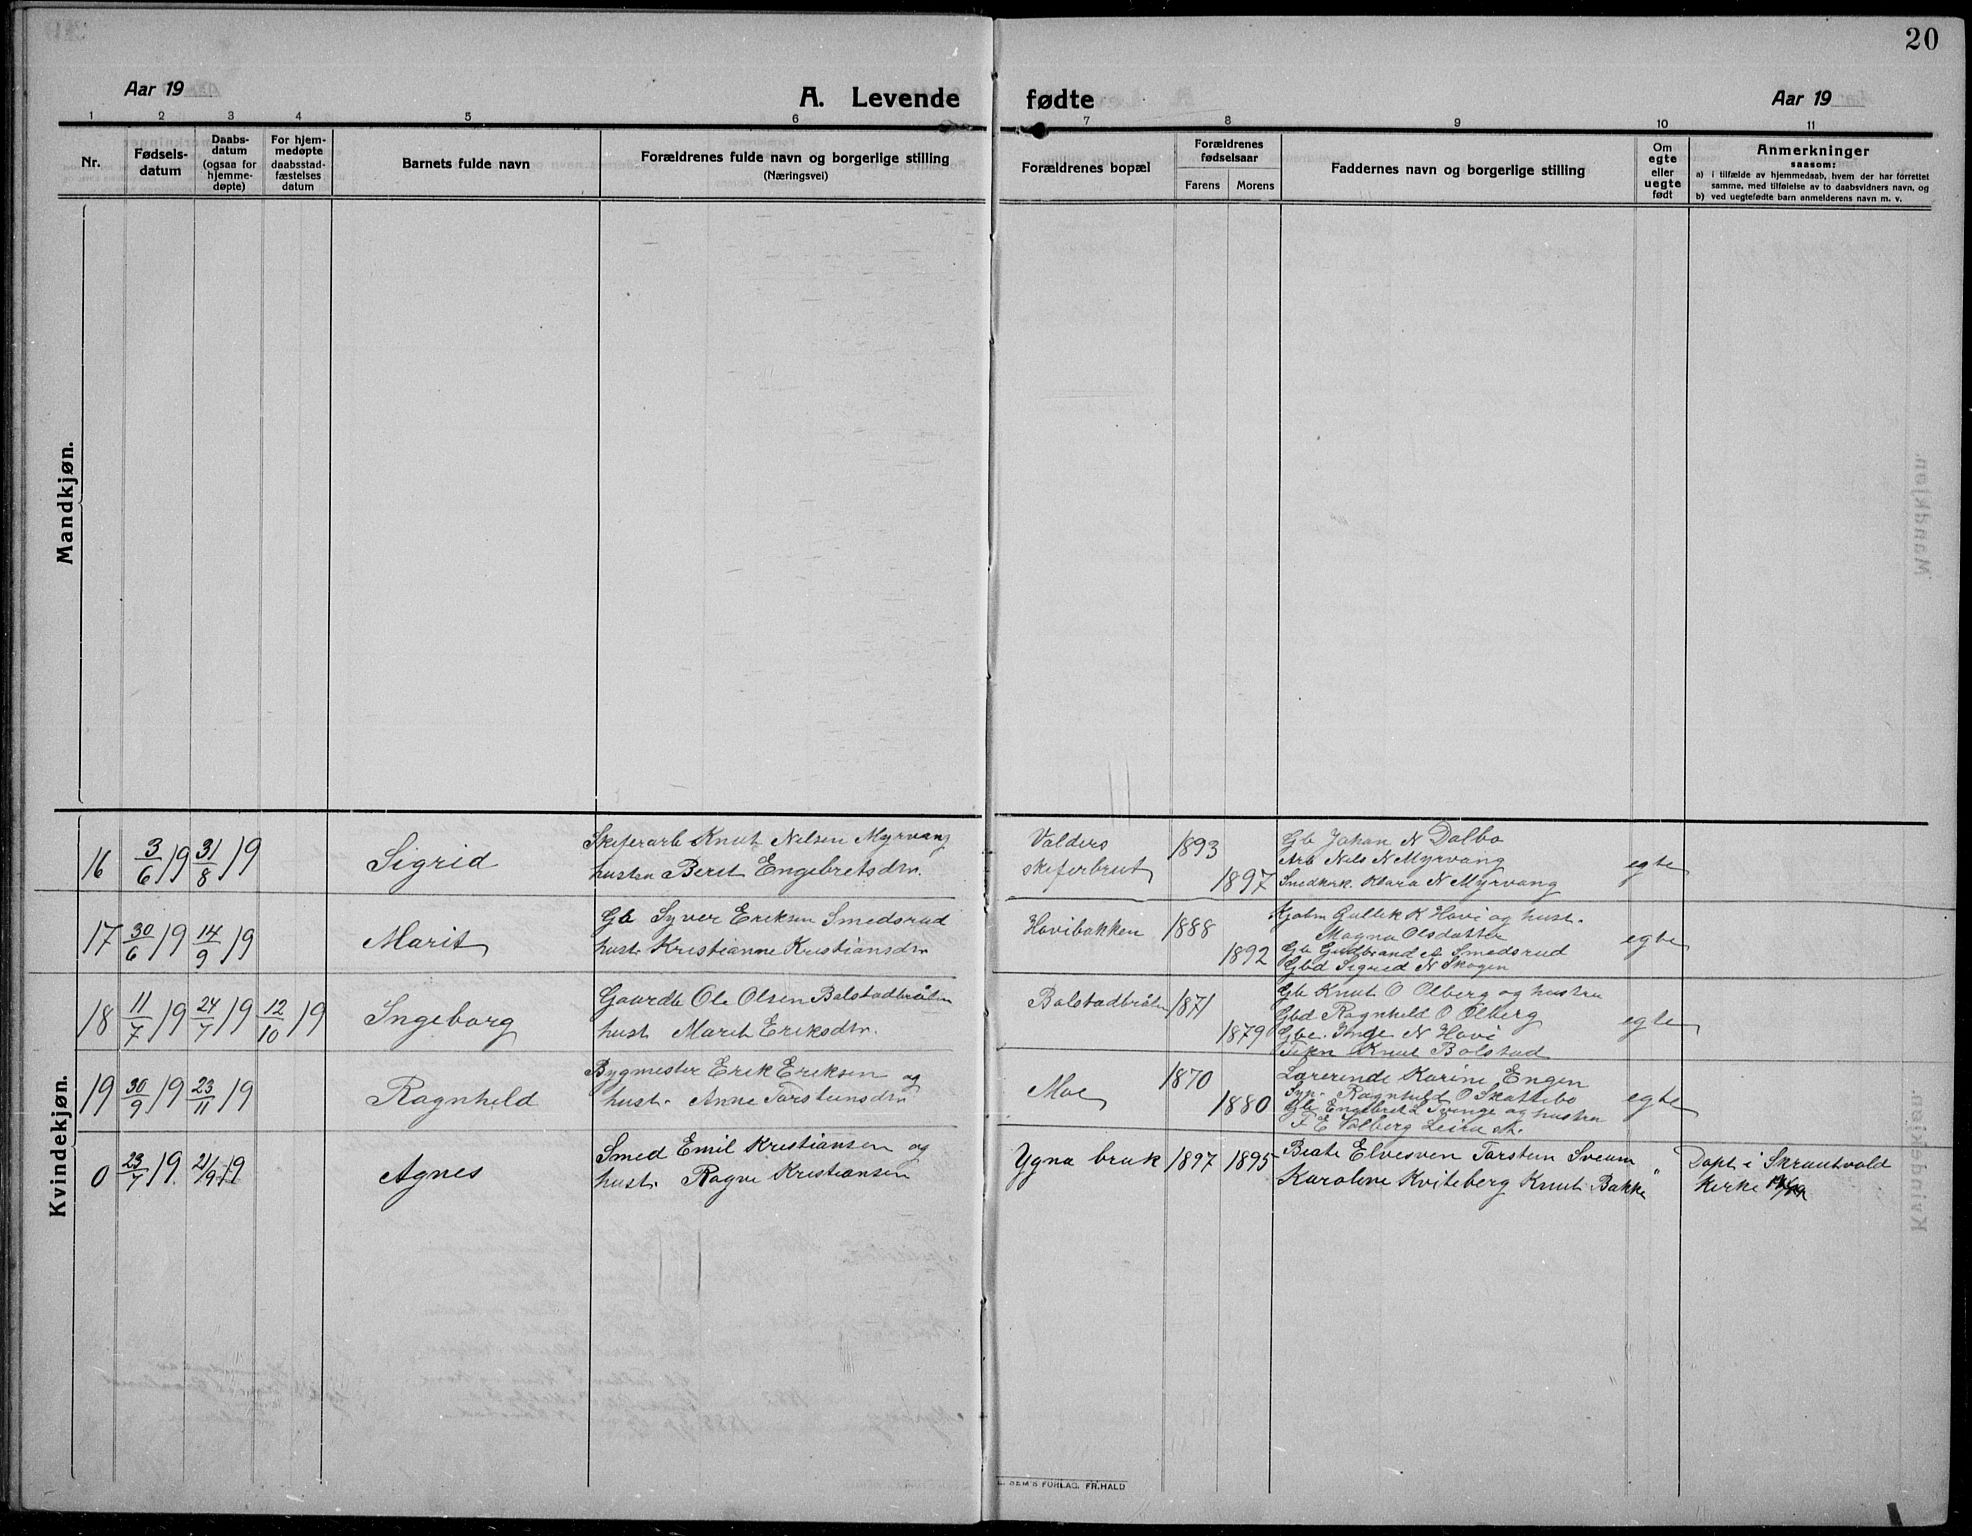 20
Aar 19
A. Levende fødte
Aar 19
1 2 3 4 5 6 7 8 9 10 11
Nr.
Fødsels-
datum
Daabs-
datum
(ogsaa for
hjemme-
døpte)
For hjem-
medøpte
daabsstad-
fæstelses
datum
Barnets fulde navn
Forældrenes fulde navn og borgerlige stilling
(Næringsvei)
Forældrenes bopæl
Forældrenes
fødselsaar
Farens Morens
Faddernes navn og borgerlige stilling
Om
egte
eller
uegte
født
Anmerkninger
saasom:
a) i tilfælde av hjemmedaab, hvem der har forrettet
samme, med tilføielse av to daabsvidners navn, og
b) ved uegtefødte barn anmelderens navn m. v.
Mandkjøn.
Kvindekjøn.
16 3/6 19 31/8 19 Sigrid
Skiferarb Knut Nilsen Myrvang
hustru Berit Engebretsdtr.
Valders
skiferbrut
1893
1897
Gb Johan N Dalbo
Arb Nils N Myrvang
Klara N Myrvang
egte
17 30/6 19 14/9 19 Marit
Gb Syver Eriksen Smedsrud
hust. Kristianne Kristiansdtr
Hovibakken
1888
1892
Gullik K Hovi og hust.
Magna Olsdatter
Gb Gudbrand Smedsrud
Gbd Sigrid N Skogen
egte
18 11/7 19 24/7 19 12/10 19 Ingeborg
Gaardbr Ole Olsen Bolstadbråten
hust Marit Eriksdtr.
Bolstadbråten
1871
1879
Gb Knut O Ølberg og hustru
Gbd Ragnhild O Ølberg
Gbe. Inge N Hovi
Knut Bolstad
egte
19 30/9 19 23/11 19 Ragnhild
Bygmester Erik Eriksen og
hust. Anne Torsteinsdtr
Moe
1870
1880
Lærerinde Karine Engen
Syp. Ragnhild O Skattebo
Gb Engebret Svinge og hustru
F E Volberg Leira st.
egte
0 23/7 19. 21/9 19 Agnes
Smed Emil Kristiansen og
hust. Ragne Kristiansen
Ygna bruk
1897 1895
Beate Elvesven Torstein Sveum
Karoline Kviteberg Knut Bakke
"
Døpt i Skrautvold
kirke
E. SEM'S FORLAG, FR.HALD